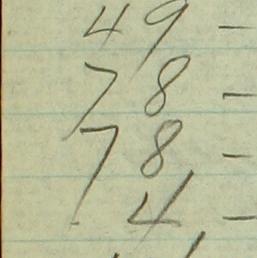 49 -
78 -
78 -
4 -